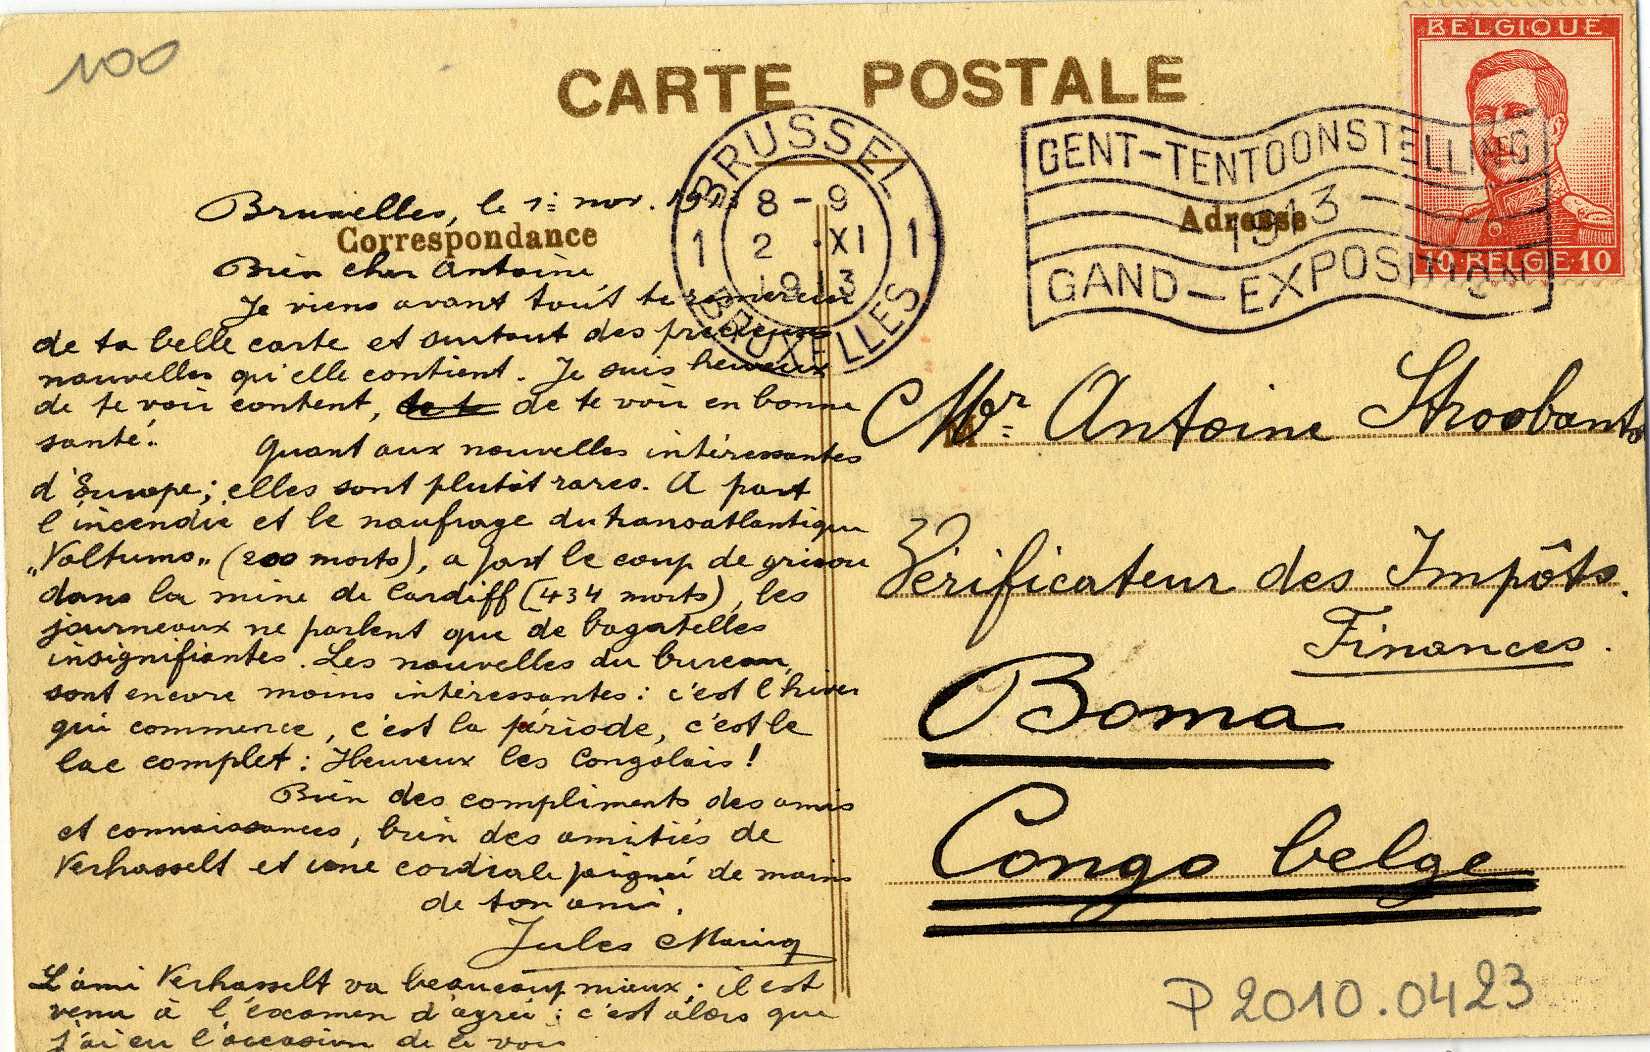 100
CARTE POSTALE
BELGIQUE
10 BELGIE 10
BRUSSEL
8-9
1 2 XI 1
1913
BRUXELLES
GENT-TENTOONSTELLING
1913
GAND-EXPOSITION
Correspondance
Adresse
Bruxelles, le 1: nov. 1913
Bien cher Antoine
Je viens avant tout te remercier
de ta belle carte et surtout des précieuses
nouvelles qu'elle contient. Je suis heureux
de te voir content, de te voir en bonne
santé.
Quant aux nouvelles intéressantes
d'Europe; elles sont plutôt rares. A part
l'incendie et le naufrage du transatlantique
„Volturno„ (200 morts), a part le coup de grisou
dans la mine de Cardiff (434 morts), les
journeaux ne parlent que de bagatelles
insignifiantes. Les nouvelles du bureau,
sont encore moins intéressantes: c'est l'hiver
qui commence, c'est la période, c'est le
lac complet: Heureux les Congolais!
Bien des compliments des amis
et connaissances, bien des amitiés de
Verhasselt et une cordiale poignée de mains
de ton ami.
Jules
L'ami Verhasselt va beaucoup mieux; il est
venu à l'examen d'agréé; c'est alors que
j'ai eu l'occasion de le voir
Mr Antoine Stroobants
Vérificateur des Impôts.
Finances.
Boma
Congo belge
P2010.0423